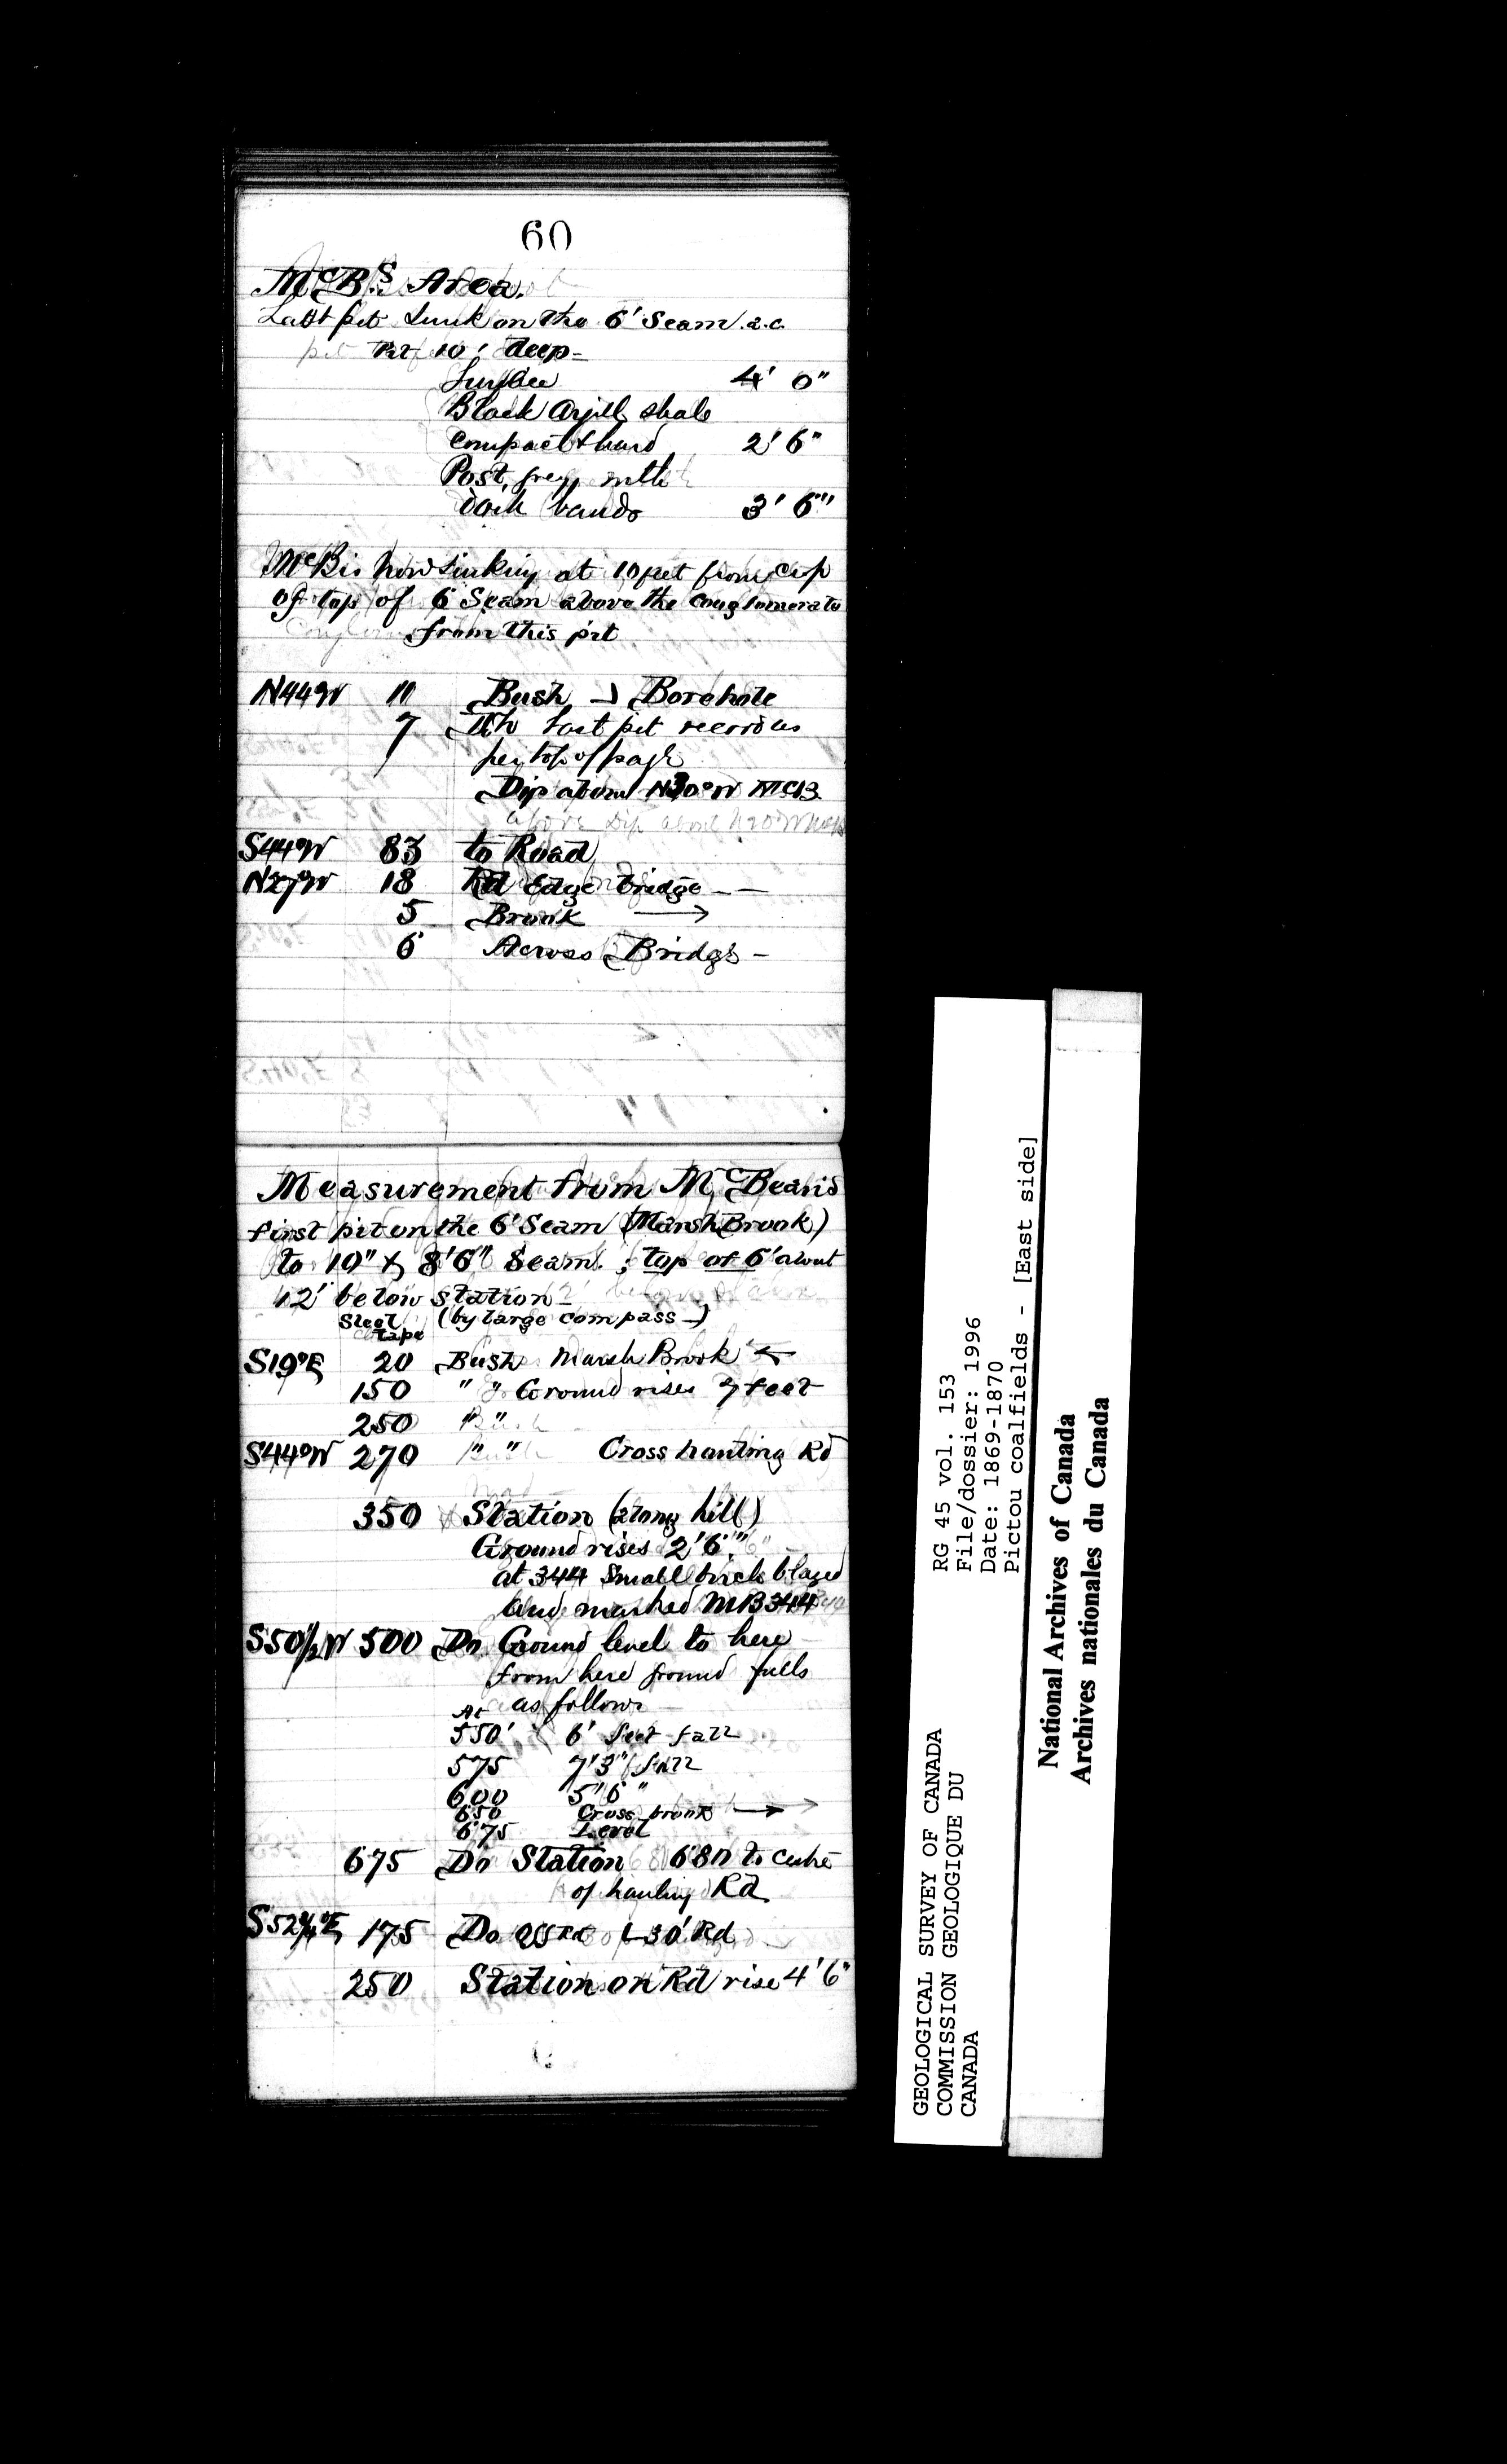 60
McB.s Area.
Last pit sunk on the 6' Seam a.c.
Pit 10' deep—
Surface 4' 0"
Black Argill. shale
compact & hard 2' 6"
Post, grey with
dark bands 3' 6"
McB is now sinking at 10 feet from crop
of top of 6 Seam above the conglomerate
from this pit
N44W 11 Bush → Borehole
7 The last pit record as
per top of page
Dip about N30°W McB
above Dip about N20°W McB
S44°W 83 to Road
N27°W 18 Rd Edge bridge — —
5 Brook →
6 Across Bridge —
Measurement from McBean's
first pit on the 6' Seam (Marsh Brook)
to 10" & 8'6" Seam ; top of 6' about
12' below station—
Steel (by large compass—)
tape
S19°E 20 Bush Marsh Brook ←
150 " " Ground rises 7 feet
250 " "
S44°W 270 " " Cross hauling Rd
350 Station (along hill)
Ground rises 2'6"
at 344 Small birch blazed
and marked MB344
S50½W 500 Do. Ground level to here
from here ground falls
At as follows
550' 6' feet fall
575 7'3" fall
600 5'6 "
650 Cross brook →
675 Level
675 Do Station 680 to centre
of hauling Rd
S52¾°E 175 Do 30' Rd
250 Station on Rd rise 4'6"
GEOLOGICAL SURVEY OF CANADA RG 45 vol. 153
COMMISSION GEOLOGIQUE DU File/dossier: 1996
CANADA Date: 1869-1870
Pictou coalfields - [East side]
National Archives of Canada
Archives nationales du Canada